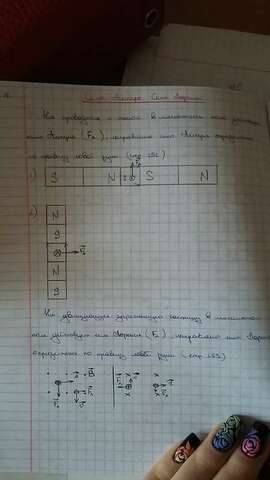 Сила Ампера. Сила Лоренца
На проводник с током в магнитном поле действует
сила Ампера (Fₐ), направление силы Ампера определяется
по правилу левой руки (стр
1) S N S N
2) N
S
F
N
S
На движущуюся заряженную частицу в магнитном
поле действует сила Лоренца (F), направление силы Лоренца
определяется по правилу левой руки (стр